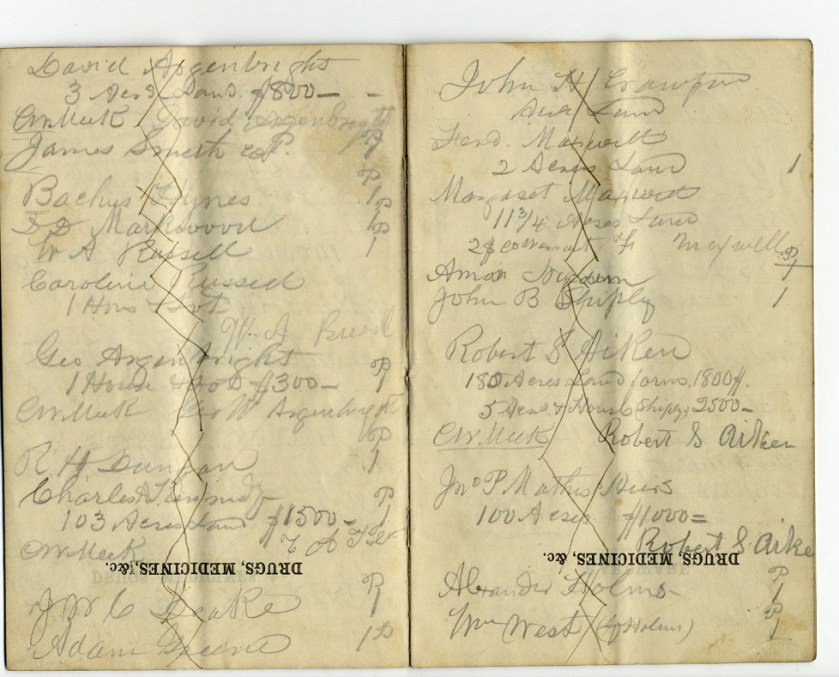 David Argenbright
3 Acrs Land. $800 —
CW Meek David Argenbright
James Smith P.
P
1
P
Bachus Hynes 1
P
S D Markwood 1
P
W A Russell 1
Caroline Russell
1 Hous & Lot
W. A
Geo Argenbright P
1 House & Lot $300 — 1
CW Meek Geo W Argenbright
P
R. H. Duncan 1
Charles A P
103 Acres Land $1500 — 1
CW Meek
DRUGS, MEDICINES, &c.
P
J W C Deake 1
Adam Greene 1 P
John H Crawford
Land
Ferd. Maxwell
2 Acres Land 1
Margaret Maxwell
11 3/4 Acres Land
Maxwell
P
Amon 1
John B Shiply 1
Robert S Aiken
180 Acres Land farm, 1800 $.
5 Acres & House Shiply, 2500 —
CW Meek Robert S Aiken
Jno P Mathis Heirs
100 Acres $1000 =
Robert S Aike
DRUGS, MEDICINES, &c.
P
Alexander Holms 1
P
Wm West (by Holms) 1